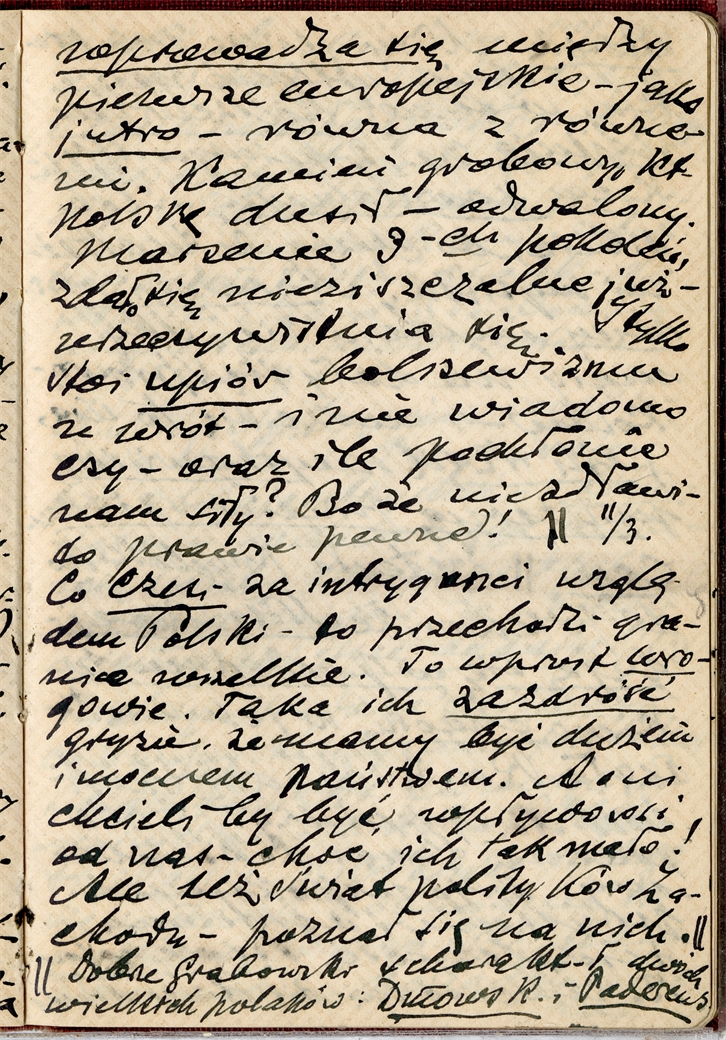 wprowadza się między
pierwsze europejskie – jako
jutro – równa z równe-
mi. Kamień grobowy, kt.
Polskę dusił – odwalony.
Marzenie 3-ch pokoleń,
zdał. się nieziszczalne już –
urzeczywistnia się. tylko
stoi upiór bolszewizmu
u wrót – i nie wiadomo
czy – oraz ile pochłonie
nam siły? Bo że nie zdławi –
to prawie pewne! || 11/3.
Co Czesi za intryganci wzglę-
dem Polski – to przechodzi gra-
nice wszelkie. To wprost wro-
gowie. Taka ich zazdrość
gryzie, że mamy być dużem
i mocnem państwem. A oni
chcieli by być wpływowsi
od nas – choć ich tak mało!
Ale też świat polityków Za-
chodu – poznał się na nich. ||
|| Dobre Grabowski scharakt-ł dwóch
wielkich polaków: Dmowsk. i Paderews